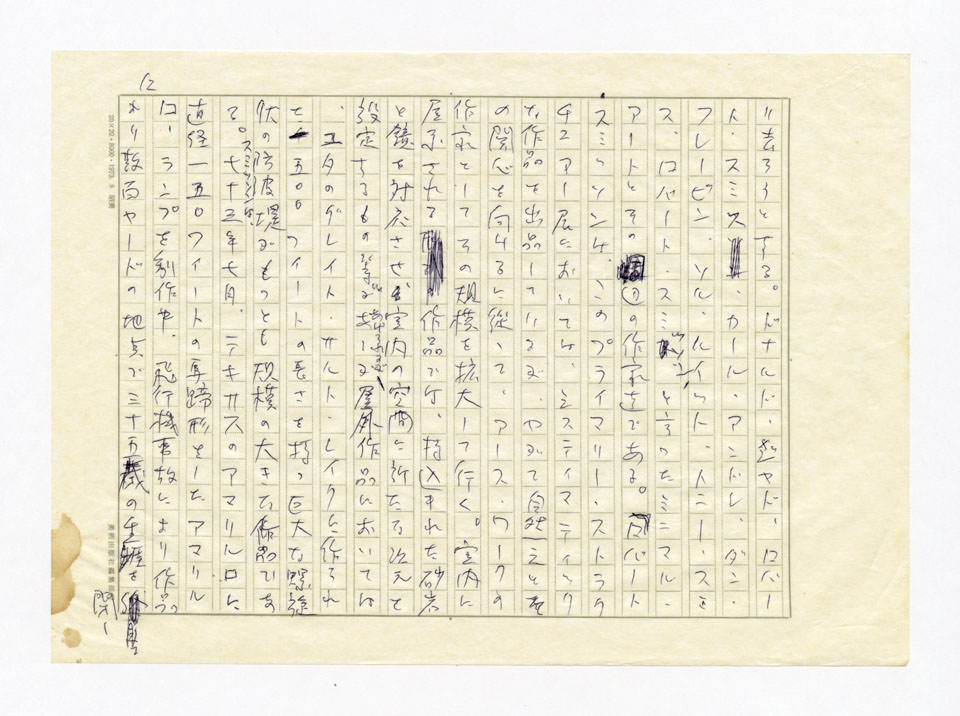 り去ろうとする。ドナルド・ジャド、ロバー
ト・スミス、カール・アンドレ、ダン・
フレービン、ソル・ルイット、トニー・スミ
ス、ロバート・スミッソンと言ったミニマル・
アートとその周辺の作家達である。ロバート
スミッソンは、このプライマリー・ストラク
チュアー展においては、システィマティック
な作品を出品しているが、やがて自然へと
の関心を向けるに従って、アース・ワークの
作家としてその規模を拡大して行く。室内に
展示される作品では、持込まれた砂岩
と鏡を対応させ室内の空間に新たな次元を
設定するもの 屋外作品においては
、ユタのグレイト・ソルト・レイクに作られ
た一五〇〇フィートの長さを持つ巨大な螺旋
状の防波堤がもっとも規模の大きな作品であ
る。スミッソンは、七十三年七月、テキサスのアマリルロに
直径一五〇フィートの馬蹄形をしたアマリル
ロ・ランプを制作中、飛行機事故により作品
より数百ヤードの地点で三十五歳の生涯を閉じ
12
20×20・8000・1973.9 昭
美術出版社